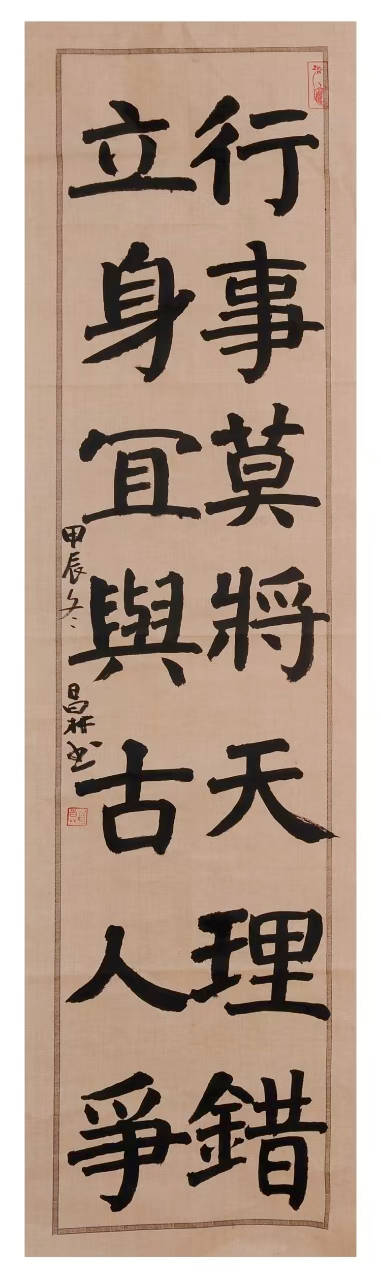 行事莫將天理錯
立身冝與古人爭
甲辰冬
昌林書